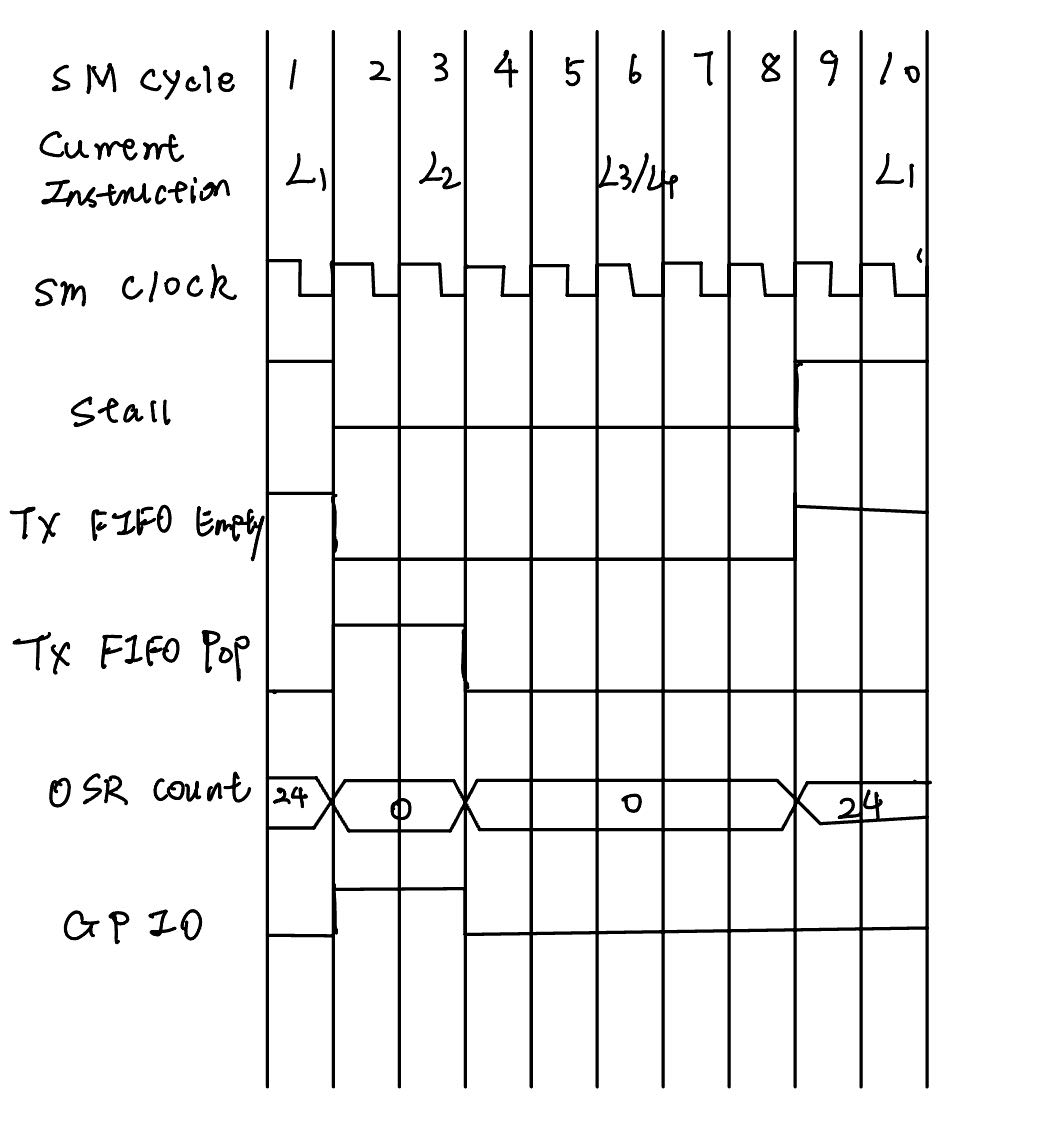 SM Cycle 1 2 3 4 5 6 7 8 9 10
Current
Instruction L1 L2 L3/L4 L1
Sm Clock
Stall
Tx FIFO Empty
Tx FIFO Pop
OSR count 24 0 0 24
GPIO